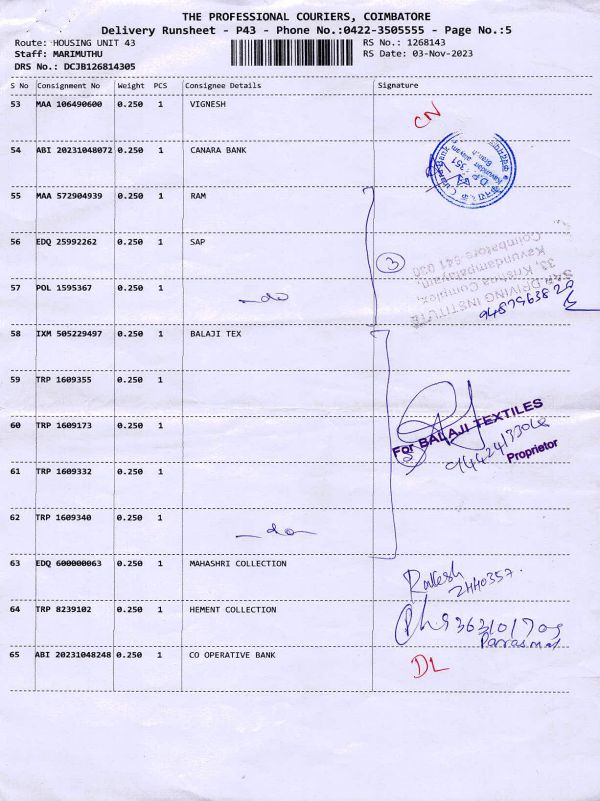 THE PROFESSIONAL COURIERS, COIMBATORE
Delivery Runsheet - P43 - Phone No.:0422-3505555 - Page No.:5
Route: HOUSING UNIT 43 RS No.: 1268143
Staff: MARIMUTHU RS Date: 03-Nov-2023
DRS No.: DCJB126814305
S No Consignment No Weight PCS Consignee Details Signature
53 MAA 106490600 0.250 1 VIGNESH CN
54 ABI 20231048072 0.250 1 CANARA BANK
55 MAA 572904939 0.250 1 RAM
56 EDQ 25992262 0.250 1 SAP 3
SAP DRIVING INSTITUTE
33, Krishna Complex,
Kavundampalayam,
Coimbatore-641 030
57 POL 1595367 0.250 1 -do
58 IXM 505229497 0.250 1 BALAJI TEX
59 TRP 1609355 0.250 1
60 TRP 1609173 0.250 1
For BALAJI TEXTILES
Proprietor
61 TRP 1609332 0.250 1
62 TRP 1609340 0.250 1 -do-
63 EDQ 600000063 0.250 1 MAHASHRI COLLECTION Rakesh
2440357.
64 TRP 8239102 0.250 1 HEMENT COLLECTION
Parasmal
65 ABI 20231048248 0.250 1 CO OPERATIVE BANK DL